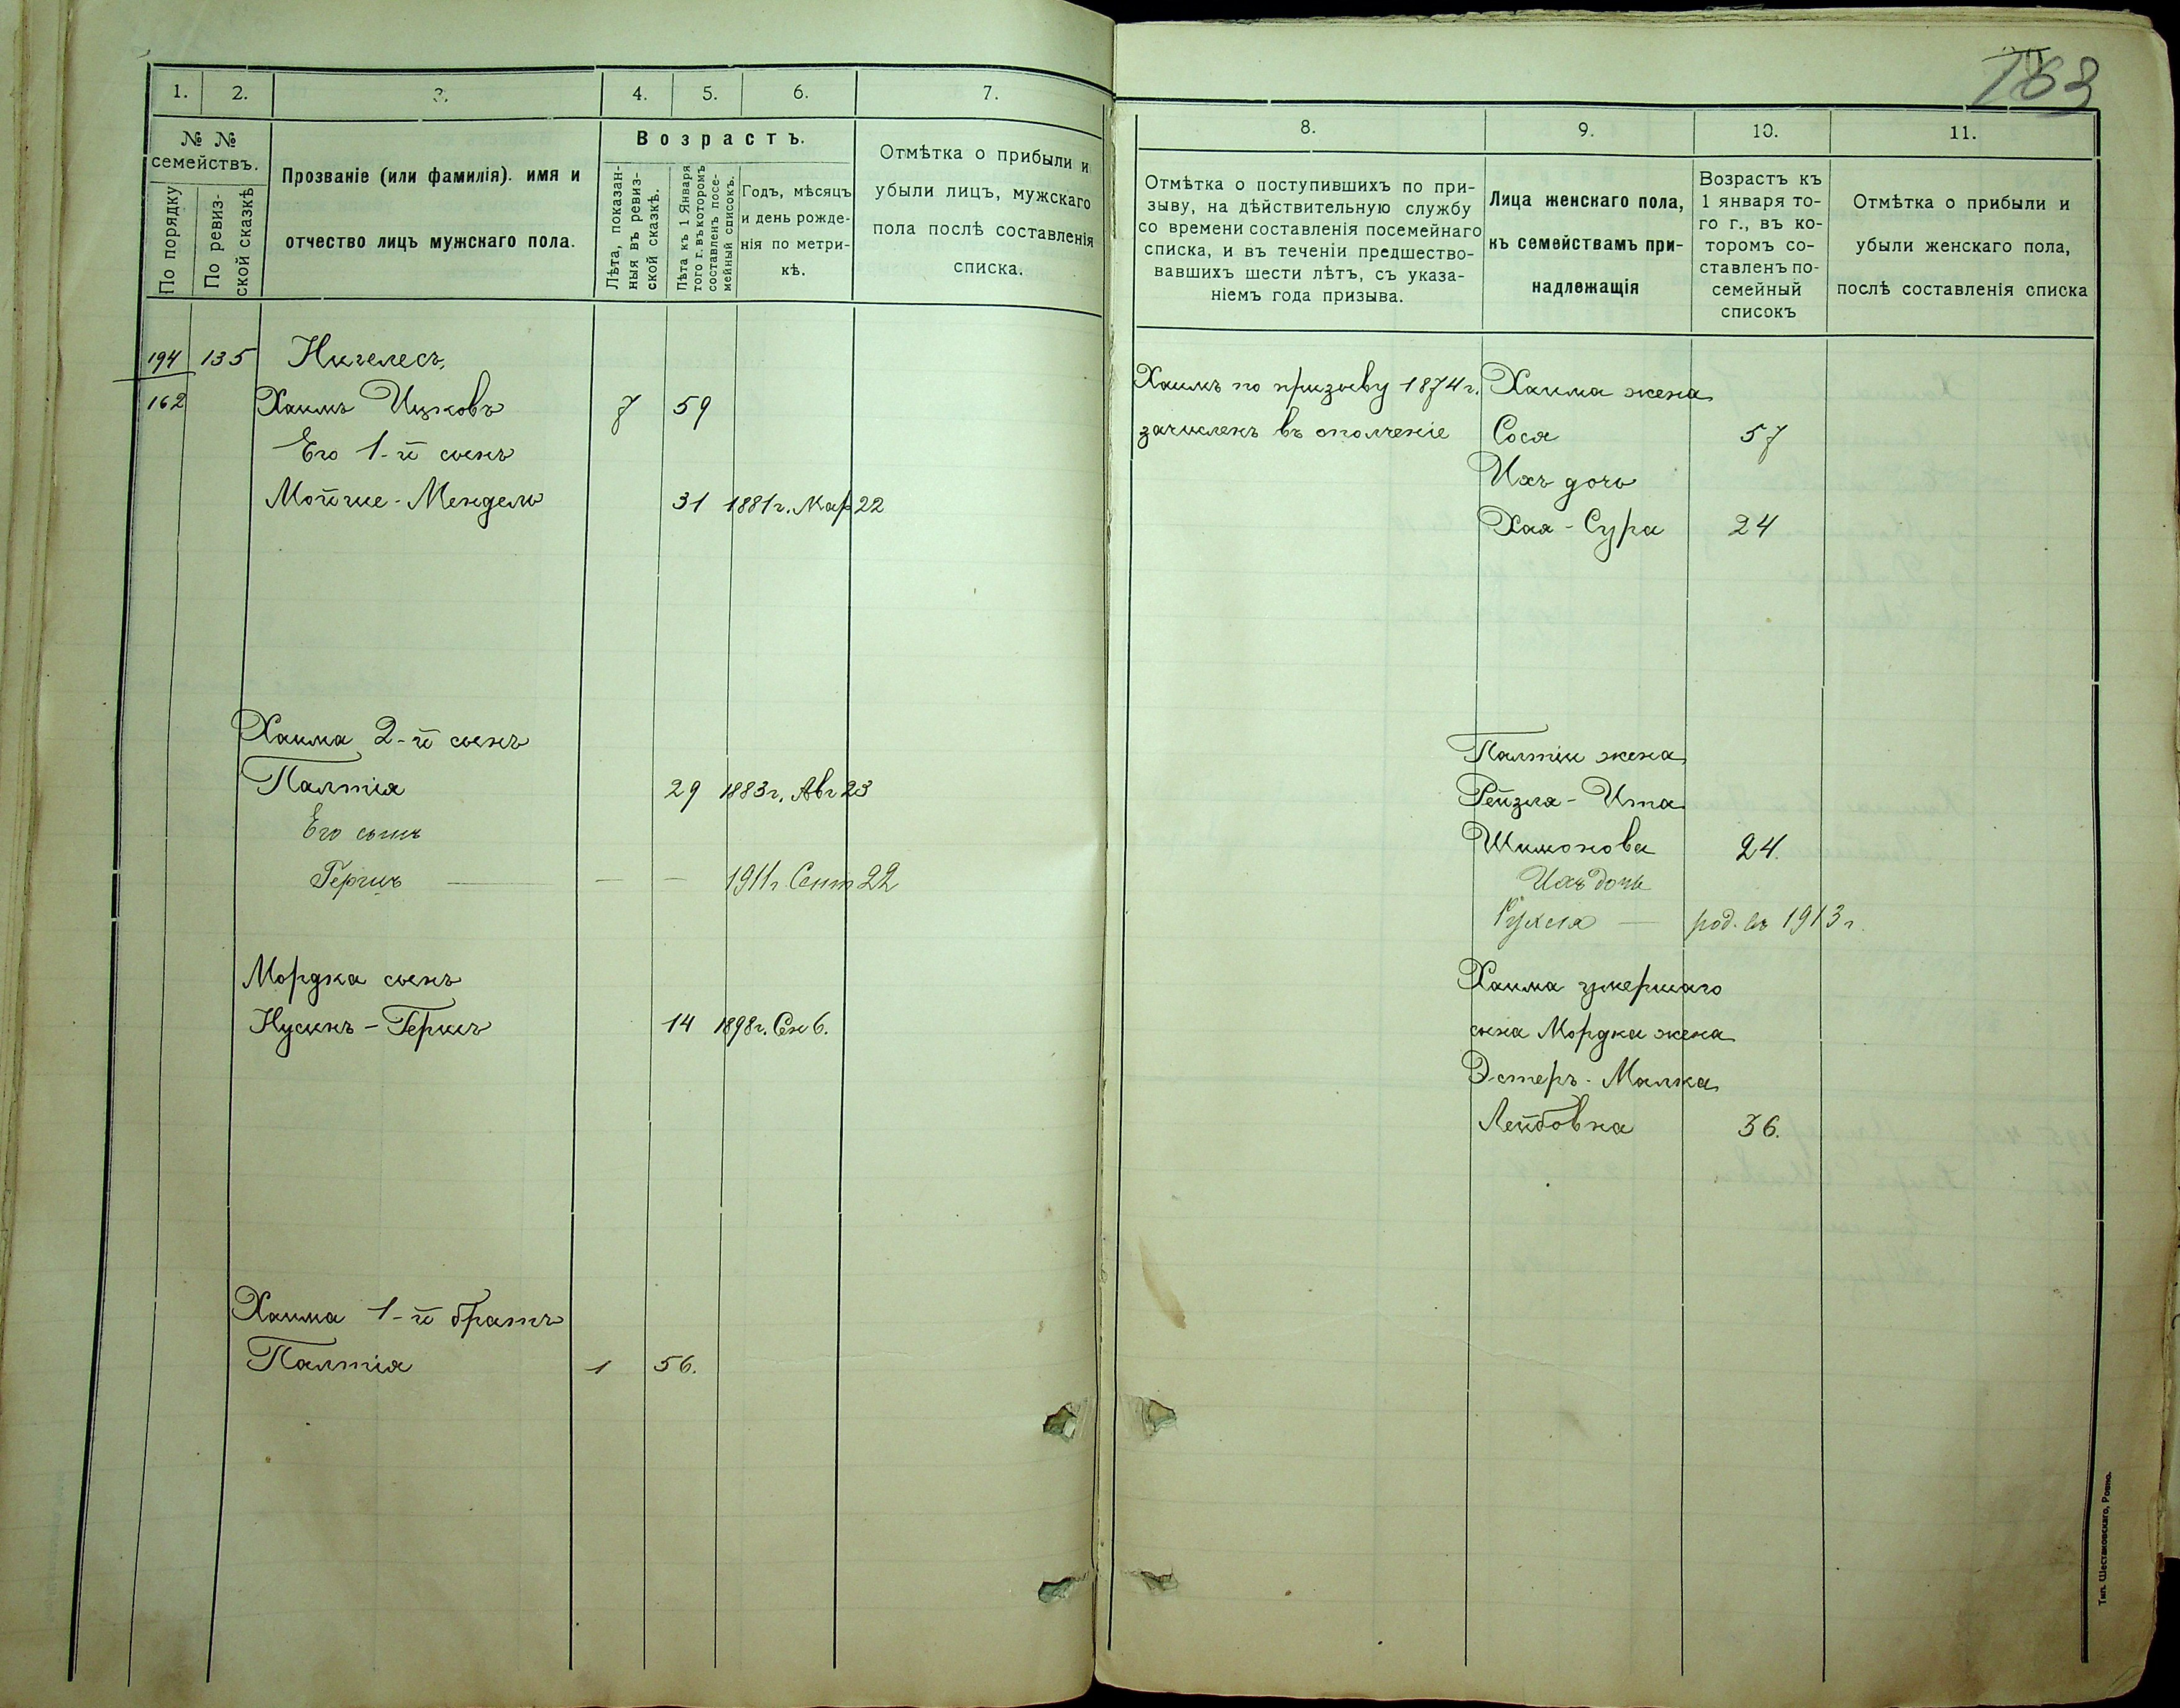 763
1. 2. 3. 4. 5. 6. 7.
№ №
семействъ.
По порядку
По ревиз-
ской сказкѣ
Прозваніе (или фамилія). имя и
отчество лицъ мужскаго пола.
Возрастъ.
Лѣта, показан-
ныя въ ревиз-
ской сказкѣ.
Лѣта къ 1 Января
того г. въ которомъ
составленъ посе-
мейный списокъ.
Годъ, мѣсяцъ
и день рожде-
нія по метри-
кѣ.
Отмѣтка о прибыли и
убыли лицъ, мужскаго
пола послѣ составленія
списка.
194 135 Нигелесъ
162 Хаимъ Ицковъ 7 59
Его 1-й сынъ
Мойше-Мендель 31 1881 г. Мар 22
Хаима 2-й сынъ
Палтія 29 1883 г. Авг 23
Его сынъ
Гершъ — — — 1911 г. Сент 22
Мордка сынъ
Нусинъ-Гершъ 14 1898 г. Сен 6.
Хаима 1-й братъ
Палтія 1 56.
8. 9. 10. 11.
Отмѣтка о поступившихъ по при-
зыву, на дѣйствительную службу
со времени составленія посемейнаго
списка, и въ теченіи предшество-
вавшихъ шести лѣтъ, съ указа-
ніемъ года призыва.
Лица женскаго пола,
къ семействамъ при-
надлежащія
Возрастъ къ
1 января то-
го г., въ ко-
торомъ со-
ставленъ по-
семейный
списокъ
Отмѣтка о прибыли и
убыли женскаго пола,
послѣ составленія списка
Хаимъ по призыву 1874 г. Хаима жена
зачисленъ въ ополченіе Сося 57
Ихъ дочь
Хая-Сура 24
Палтіи жена
Рейзля-Ита
Шимонова 24.
Ихъ дочь
Рухля — род. въ 1913 г.
Хаима умершаго
сына Мордка жена
Эстеръ-Малка
Лейбовна 36.
Тип. Шестаковскаго, Ровно.